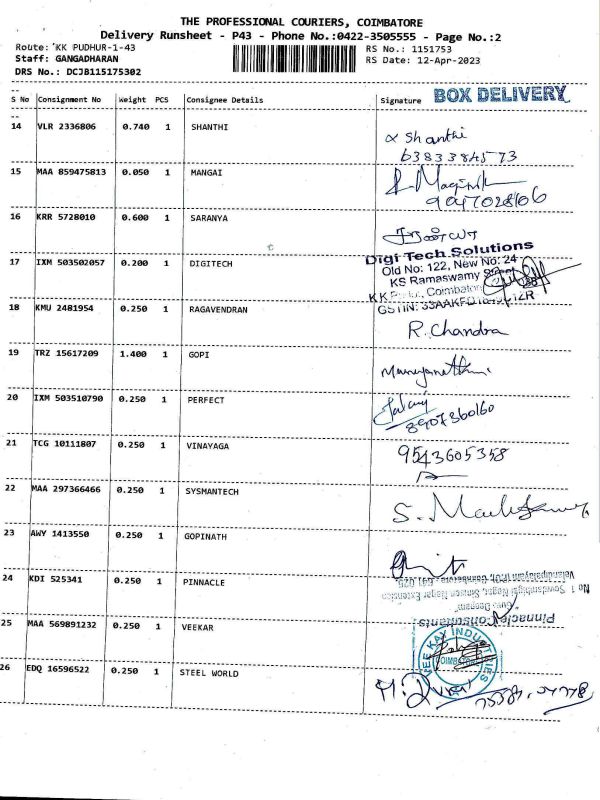 THE PROFESSIONAL COURIERS, COIMBATORE
Delivery Runsheet - P43 - Phone No.:0422-3505555 - Page No.:2
Route: KK PUDHUR-1-43
RS No.: 1151753
Staff: GANGADHARAN
RS Date: 12-Apr-2023
DRS No.: DCJB115175302
S No Consignment No Weight PCS Consignee Details Signature BOX DELIVERY
14 VLR 2336806 0.740 1 SHANTHI
Shanthi
15 MAA 859475813 0.050 1 MANGAI
16 KRR 5728010 0.600 1 SARANYA
Digi Tech Solutions
Old No: 122, New No: 24
17 IXM 503502057 0.200 1 DIGITECH
KS Ramaswamy
Coimbatore
GSTIN:
18 KMU 2481954 0.250 1 RAGAVENDRAN
R. Chandra
19 TRZ 15617209 1.400 1 GOPI
20 IXM 503510790 0.250 1 PERFECT
8907360160
21 TCG 10111807 0.250 1 VINAYAGA
9543605358
22 MAA 297366466 0.250 1 SYSMANTECH
23 AWY 1413550 0.250 1 GOPINATH
24 KDI 525341 0.250 1 PINNACLE
Pinnacle Consultants
25 MAA 569891232 0.250 1 VEEKAR
VEE KAY INDUSTRIES
26 EDQ 16596522 0.250 1 STEEL WORLD